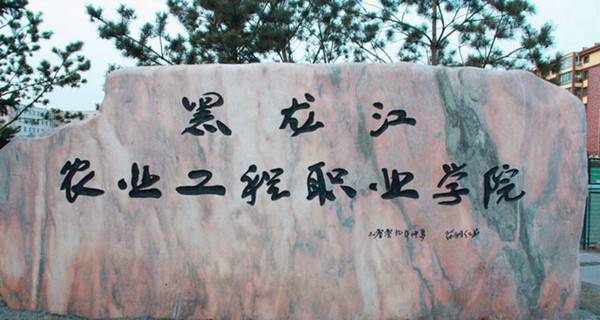 黑龙江
农业工程职业学院